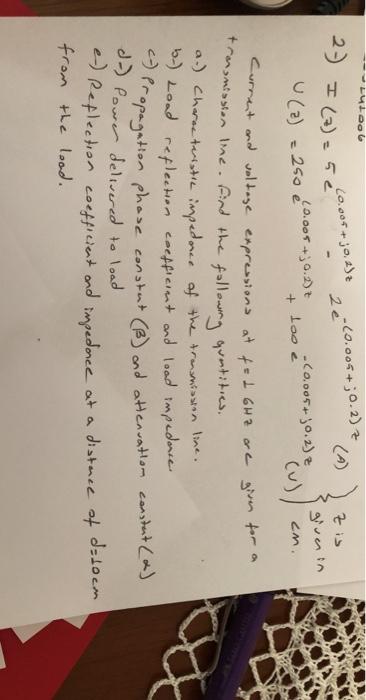 2-) I (z) = 5 e^(0.005+j0.2)z - 2e^-(0.005+j0.2)z (A) } z is
V (z) = 250 e^(0.005+j0.2)z + 100 e^-(0.005+j0.2)z (V) } given in cm.
Current and voltage expressions at f=1 GHz are given for a
transmission line. Find the following quantities.
a-) Characteristic impedance of the transmission line.
b-) Load reflection coefficient and load impedance.
c-) Propagation phase constant (β) and attenuation constant (α)
d-) Power delivered to load
e-) Reflection coefficient and impedance at a distance of d=10cm
from the load.